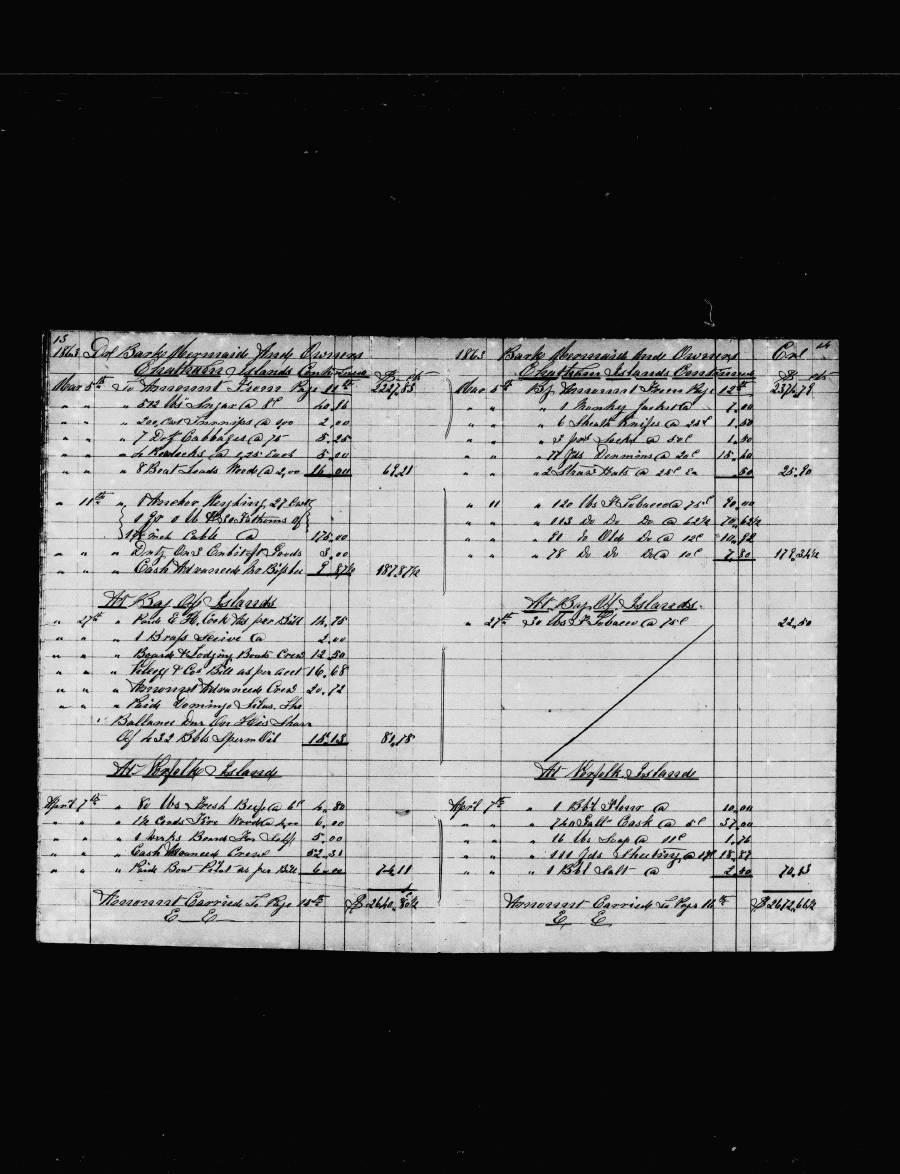 13
1863 Dr Bark Mermaid And Owners
Chatham Islands Continued $ cts
Mar 5th To Amount From Page 11th 2227,55
" " " 512 lbs Sugar @ 8c 40,96
" " " 200 Cwt Turnips @ 2,00
" " " 7 Doz Cabbages @ 75 5,25
" " " 4 @ 1,25 Each 5,00
" " " 8 Boat Loads Wood @ 2,00 16,00 69,21
" 11th " 1 Anchor Weighing 27 Cwt
1 qr 0 lb & 30 Fathoms of
inch Cable @ 175,00
" " " Duty On 3 Goods 3,00
" " " Cash Advanced 9,87½ 187,87½
At Bay Of Islands
" 27th " Paid E H. Cook As per Bill 14,75
" " " 1 Brass Seive @ 2,00
" " " Board & Lodging Boats Crew 12,50
" " " & Co Bill as per acct 16,68
" " " Amount Advanced Crew 20,12
" " " Paid Domingo The
Ballance Due On His Share
Of 432 Bbls Sperm Oil 15,13 81,18
At Norfolk Island
April 7th " 80 lbs Fresh Beef @ 6c 4,80
" " " 1½ Cords Fire Wood @ 4,00 6,00
" " " 1 Weeks Board For Self 5,00
" " " Cash Advanced Crew 52,31
" " " Paid Bow Pilot as per Bill 6,00 74,11
Amount Carried To Page 15th $2640,80½
E E
1863 Bark Mermaid And Owners Cr
Chatham Islands Continued $ cts
Mar 5th By Amount From Page 12th 2376,78
" " " 1 Monky Jacket @ 6,00
" " " 6 Sheath Knifes @ 25c 1,50
" " " 3 pr Socks @ 50c 1,50
" " " 77 Yds Dennims @ 20c 15,40
" " " 2 Straw Hats @ 25c Ea ,50 25,90
" 11 " 120 lbs Tobacco @ 75c 90,00
" " " 113 Do Do Do @ 62½ 70,62½
" " " Do Old Do @ 12c
" " " 78 Do Do Do @ 10c 7,80
At Bay Of Islands
" 27th 30 lbs Tobacco @ 75c 22,50
At Norfolk Island
April 7th " 1 Bbl Flour @ 10,00
" " " 740 Gall Cask @ 5c 37,00
" " " 16 lbs Soap @ 11c 1,76
" " " 111 Yds Sheeting @ 17c 18,87
" " " 1 Bbl Salt @ 2,50 70,13
Amount Carried To Page 16th $2672,66½
E E